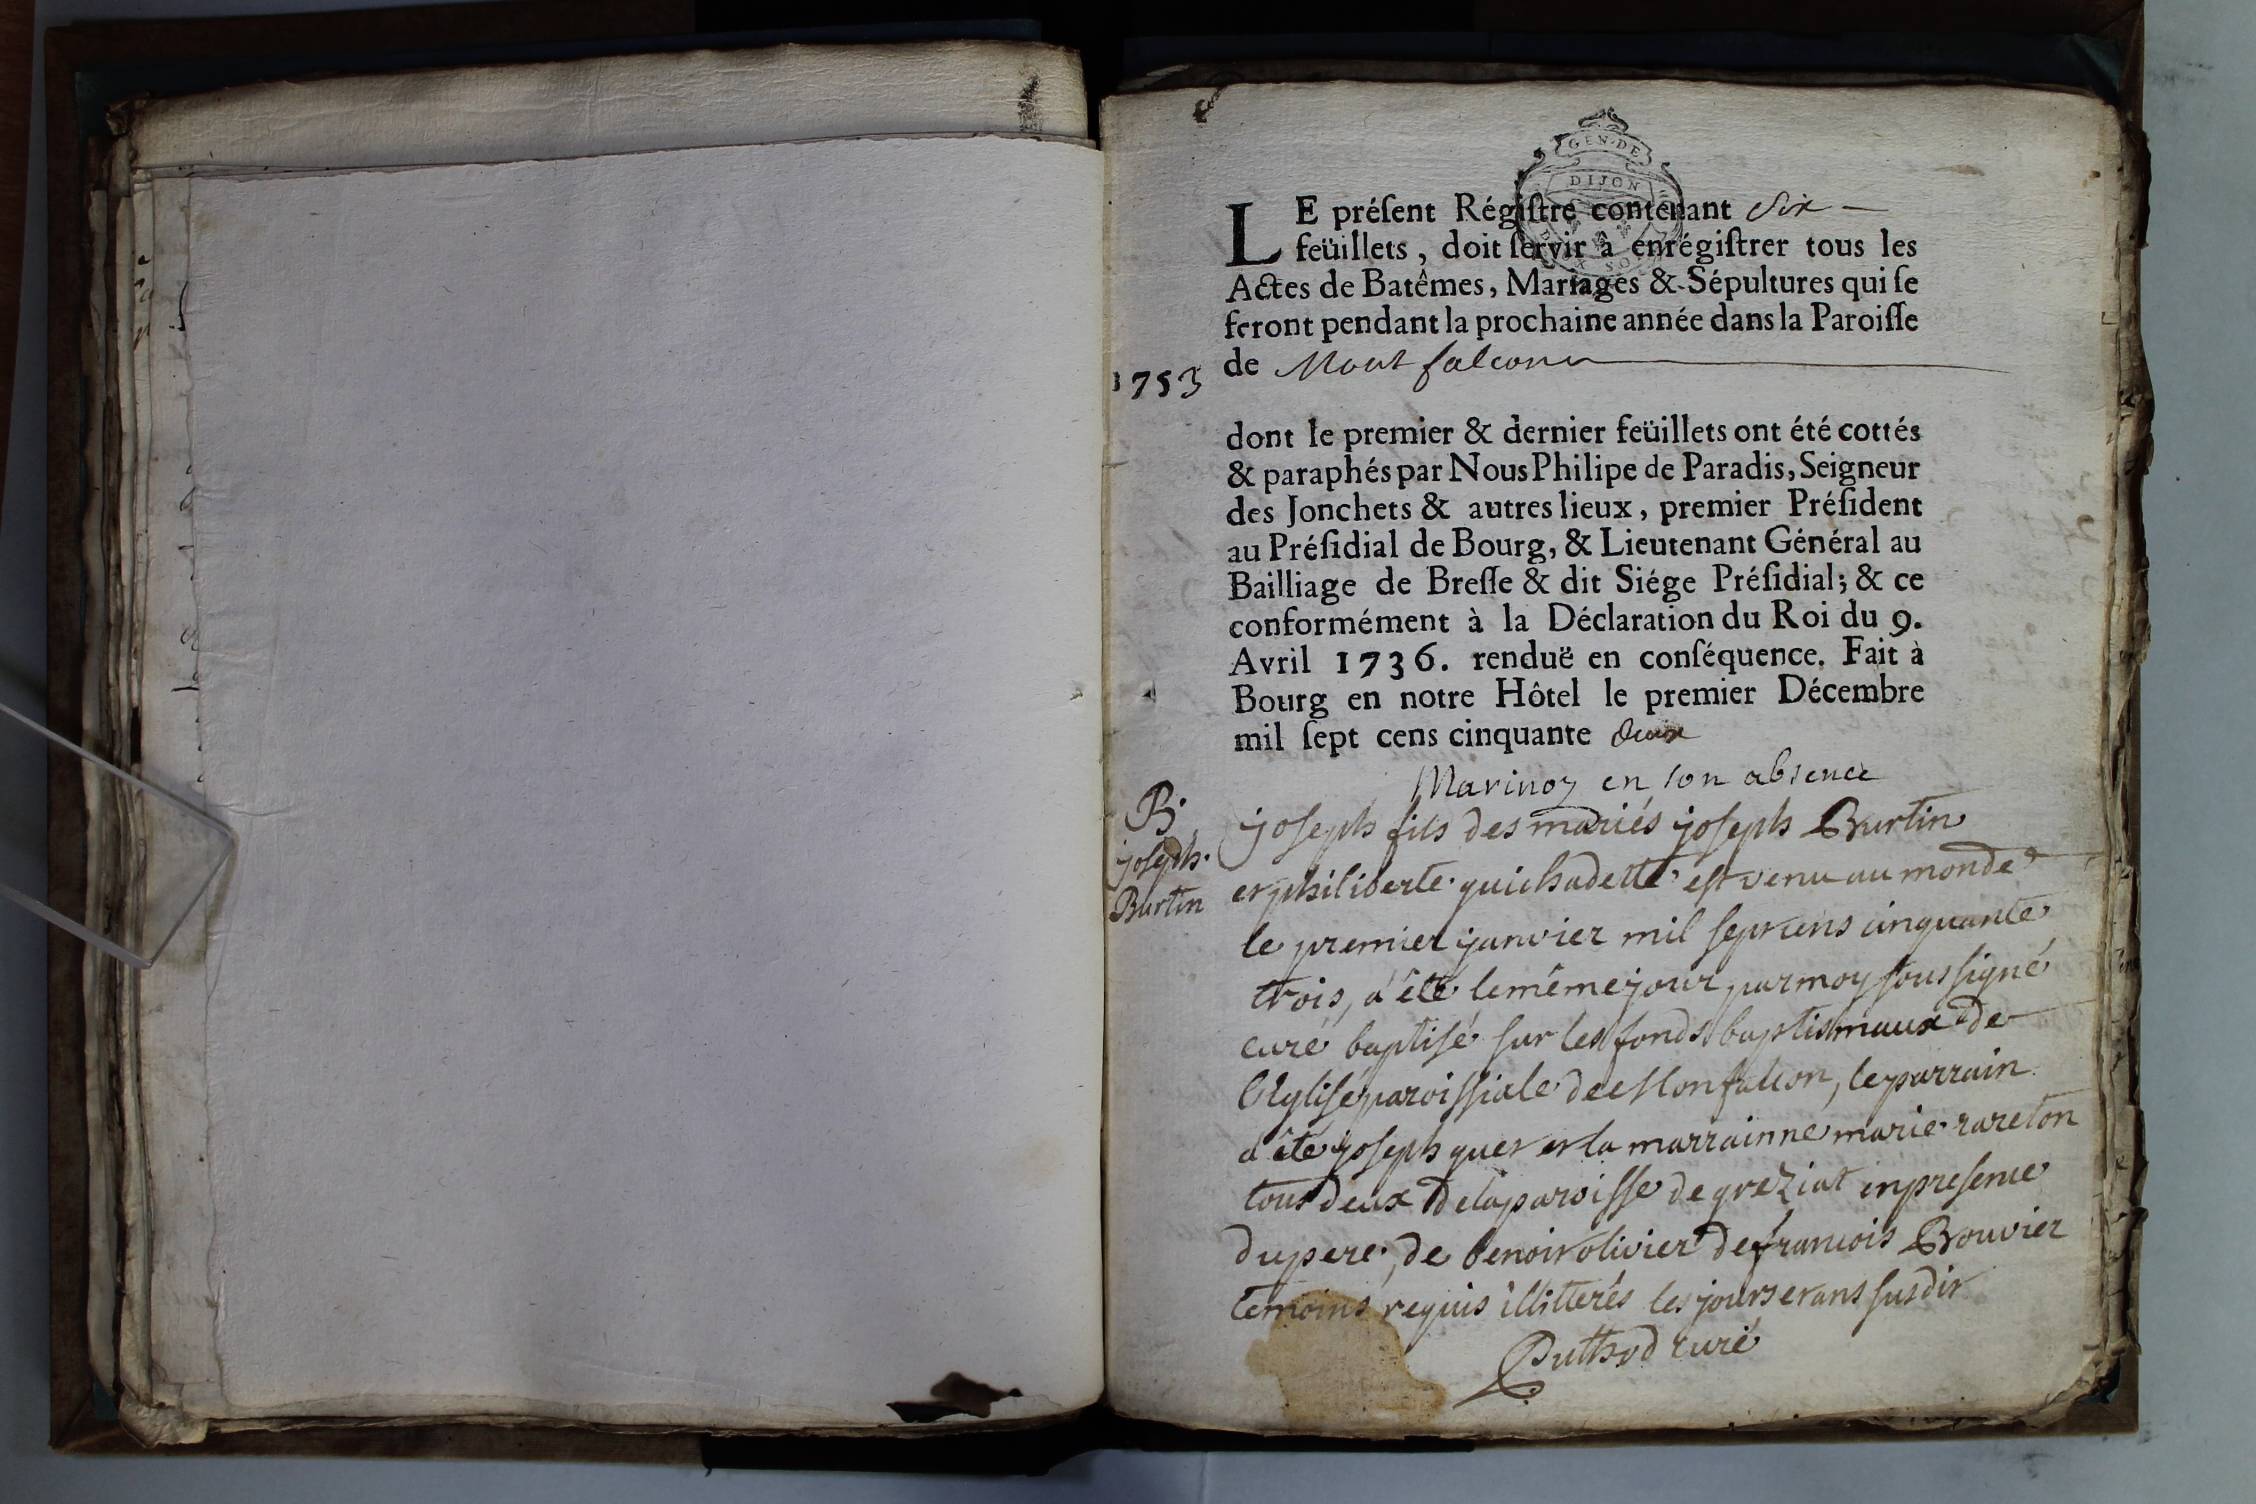 GEN. DE
DIJON
LE préſent Régiſtre contenant Six
feüillets, doit ſervir à enrégiſtrer tous les
Actes de Batêmes, Mariages & Sépultures qui ſe
feront pendant la prochaine année dans la Paroiſſe
de Montfalcon
1753
dont le premier & dernier feüillets ont été cottés
& paraphés par Nous Philipe de Paradis, Seigneur
des Jonchets & autres lieux, premier Préſident
au Préſidial de Bourg, & Lieutenant Général au
Bailliage de Breſſe & dit Siége Préſidial; & ce
conformément à la Déclaration du Roi du 9.
Avril 1736. renduë en conſéquence. Fait à
Bourg en notre Hôtel le premier Décembre
mil ſept cens cinquante deux
en son absence
B.
joseph
Burtin
joseph fils des mariés joseph Burtin
et philiberte guichadette est venu au monde
le premier janvier mil sept cens cinquante
trois, a été le même jour par moy soussigné
curé baptisé sur les fonds baptismaux de
l'Eglise paroissiale de Monfalcon, le parrain
a été joseph guer et la marrainne marie rareton
tous deux de la paroisse de greziat en presence
du pere, de benoit olivier de francois Bouvier
temoins requis illitterés les jours et ans susdit
Puthod curé